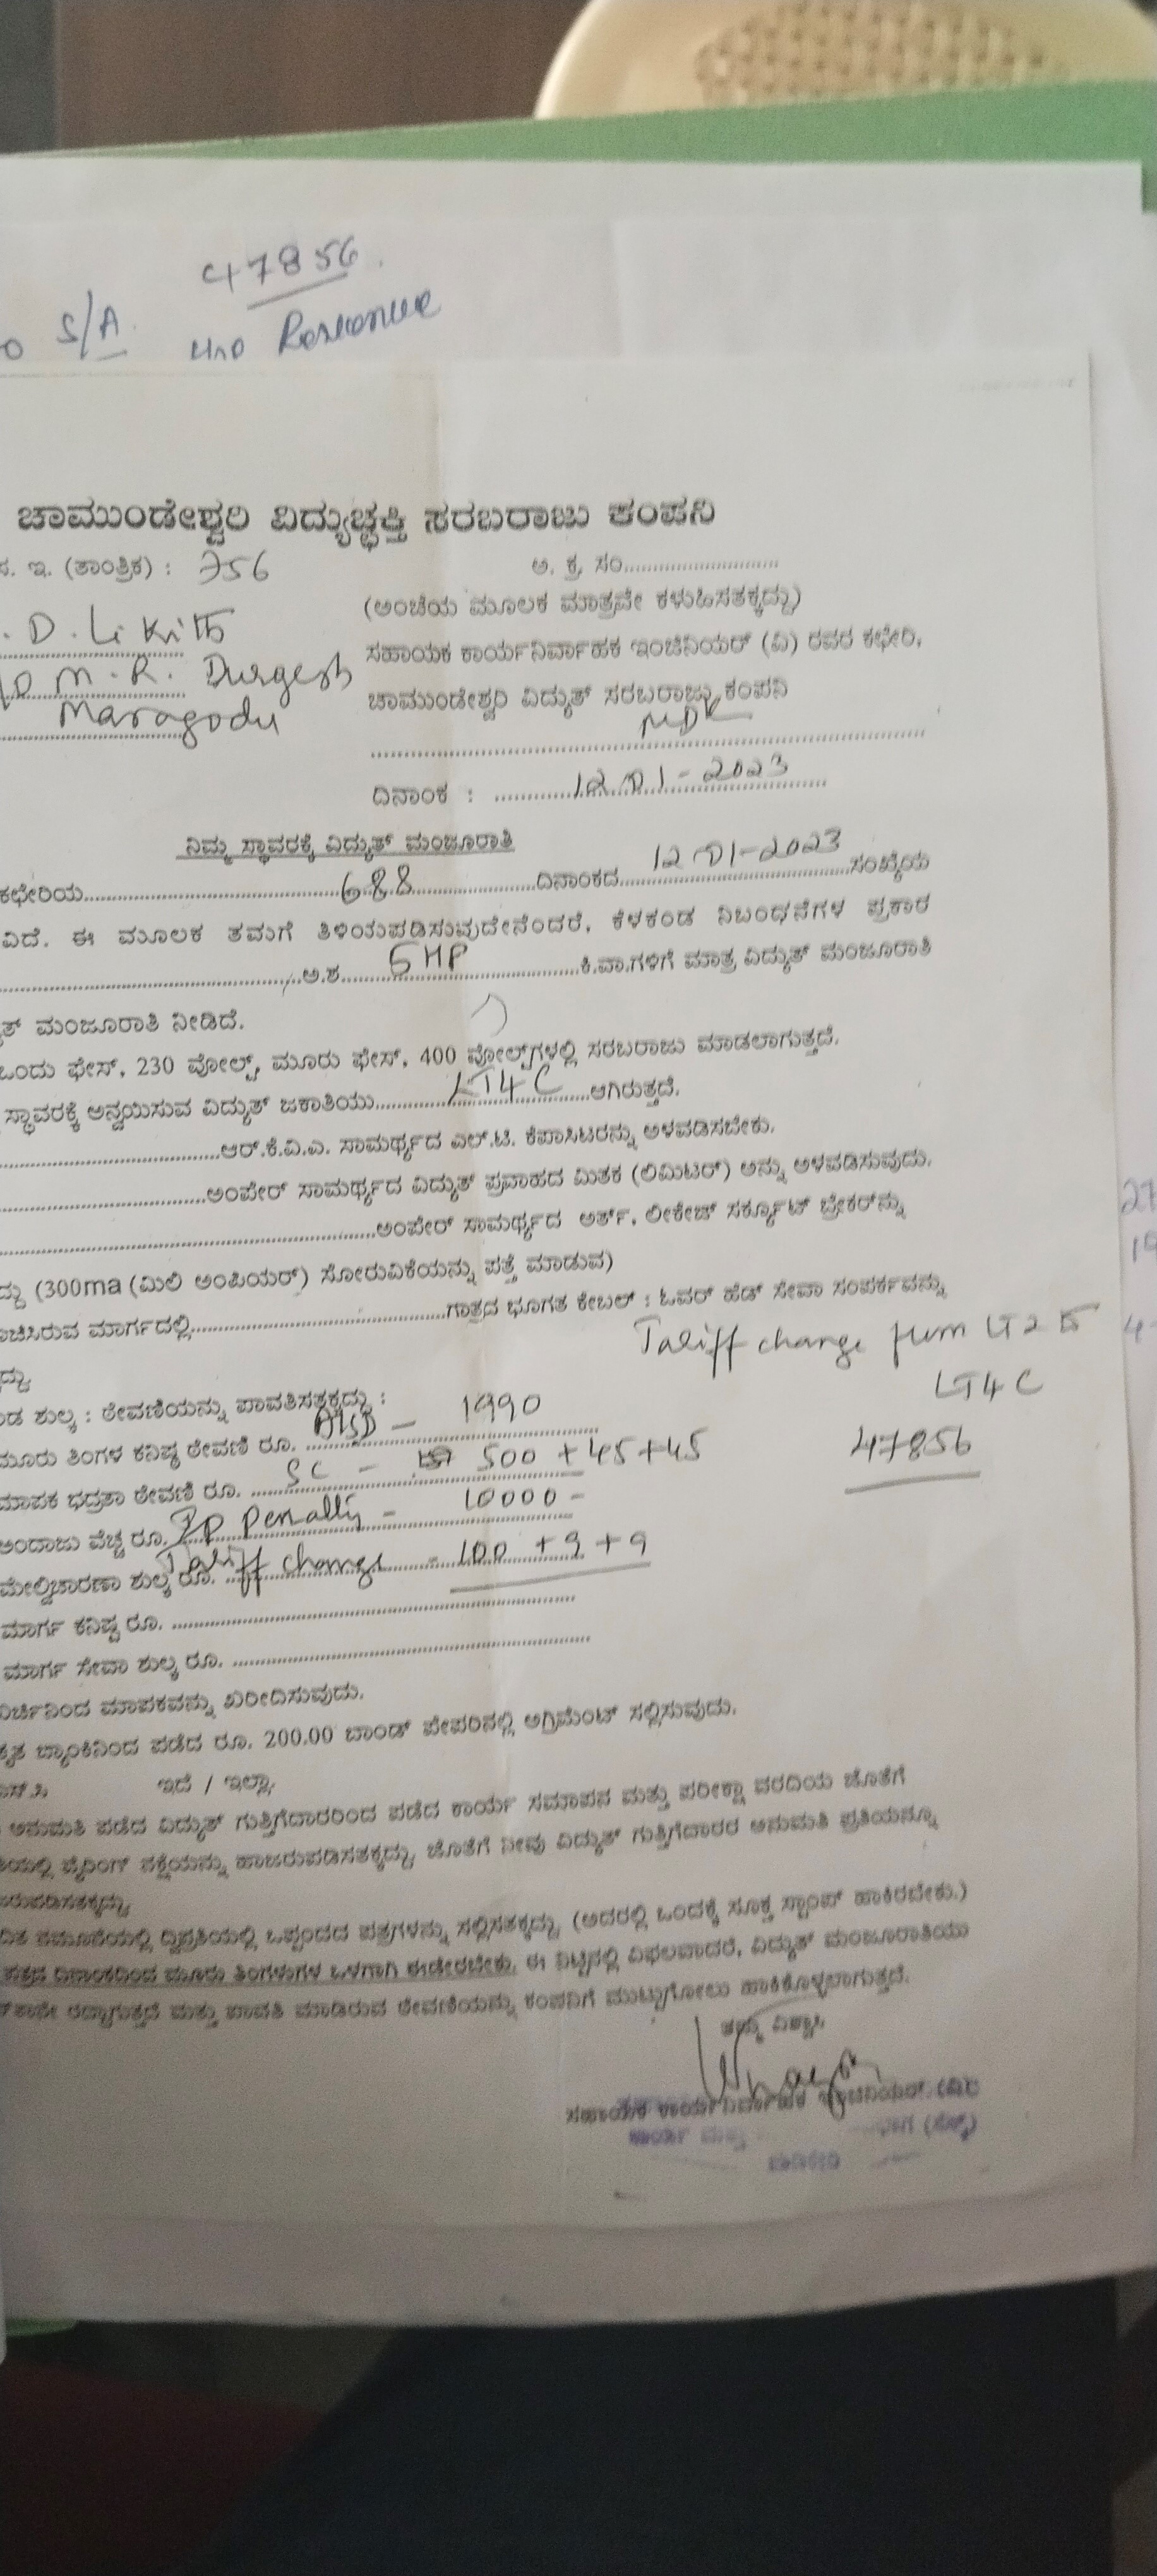 47856
S/A H/O Revenue
ಚಾಮುಂಡೇಶ್ವರಿ ವಿದ್ಯುಚ್ಛಕ್ತಿ ಸರಬರಾಜು ಕಂಪನಿ
ಸ. ಇ. (ತಾಂತ್ರಿಕ) : 756
ಅ. ಕ್ರ. ಸಂ.
(ಅಂಚೆಯ ಮೂಲಕ ಮಾತ್ರವೇ ಕಳುಹಿಸತಕ್ಕದ್ದು)
D. Likith
ಸಹಾಯಕ ಕಾರ್ಯನಿರ್ವಾಹಕ ಇಂಜಿನಿಯರ್ (ವಿ) ರವರ ಕಛೇರಿ,
M. R. Durgesh
ಚಾಮುಂಡೇಶ್ವರಿ ವಿದ್ಯುತ್ ಸರಬರಾಜು ಕಂಪನಿ
Maragodu
ದಿನಾಂಕ : 12-01-2023
ನಿಮ್ಮ ಸ್ಥಾವರಕ್ಕೆ ವಿದ್ಯುತ್ ಮಂಜೂರಾತಿ
ಕಛೇರಿಯ 688 ದಿನಾಂಕದ 12-01-2023 ಸಂಖ್ಯೆಯ
ವಿದೆ. ಈ ಮೂಲಕ ತಮಗೆ ತಿಳಿಯಪಡಿಸುವುದೇನೆಂದರೆ, ಕೆಳಕಂಡ ನಿಬಂಧನೆಗಳ ಪ್ರಕಾರ
ಅ.ಶ. HP ಕಿ.ವಾ.ಗಳಿಗೆ ಮಾತ್ರ ವಿದ್ಯುತ್ ಮಂಜೂರಾತಿ
ಮಂಜೂರಾತಿ ನೀಡಿದೆ.
ಒಂದು ಫೇಸ್, 230 ವೋಲ್ಟ್, ಮೂರು ಫೇಸ್, 400 ವೋಲ್ಟ್‌ಗಳಲ್ಲಿ ಸರಬರಾಜು ಮಾಡಲಾಗುತ್ತದೆ.
ಸ್ಥಾವರಕ್ಕೆ ಅನ್ವಯಿಸುವ ವಿದ್ಯುತ್ ಜಕಾತಿಯು LT4C ಆಗಿರುತ್ತದೆ.
ಆರ್.ಕೆ.ವಿ.ಎ. ಸಾಮರ್ಥ್ಯದ ಎಲ್.ಟಿ. ಕೆಪಾಸಿಟರನ್ನು ಅಳವಡಿಸಬೇಕು.
ಅಂಪೇರ್ ಸಾಮರ್ಥ್ಯದ ವಿದ್ಯುತ್ ಪ್ರವಾಹದ ಮಿತಕ (ಲಿಮಿಟರ್) ಅನ್ನು ಅಳವಡಿಸುವುದು.
ಅಂಪೇರ್ ಸಾಮರ್ಥ್ಯದ ಅರ್ತ್, ಲೀಕೇಜ್ ಸರ್ಕ್ಯೂಟ್ ಬ್ರೇಕರ್‌ನ್ನು
(300ma (ಮಿಲಿ ಅಂಪಿಯರ್) ಸೋರುವಿಕೆಯನ್ನು ಪತ್ತೆ ಮಾಡುವ)
ಮಾರ್ಗದಲ್ಲಿ ಗಾತ್ರದ ಭೂಗತ ಕೇಬಲ್ : ಓವರ್ ಹೆಡ್ ಸೇವಾ ಸಂಪರ್ಕವನ್ನು
Tariff change from LT2 to
LT4C
ಶುಲ್ಕ : ಠೇವಣಿಯನ್ನು ಪಾವತಿಸತಕ್ಕದ್ದು :
ಮೂರು ತಿಂಗಳ ಕನಿಷ್ಠ ಠೇವಣಿ ರೂ. MSD - 1990
ಮಾಪಕ ಭದ್ರತಾ ಠೇವಣಿ ರೂ. SC - 500 + 45 + 45
47856
ಅಂದಾಜು ವೆಚ್ಚ ರೂ. Penalty - 10000 -
ಮೇಲ್ವಿಚಾರಣಾ ಶುಲ್ಕ ರೂ. Tariff change - 100 + 9 + 9
ಮಾರ್ಗ ಕನಿಷ್ಠ ರೂ.
ಮಾರ್ಗ ಸೇವಾ ಶುಲ್ಕ ರೂ.
ಮಾಪಕವನ್ನು ಖರೀದಿಸುವುದು.
ಬ್ಯಾಂಕಿನಿಂದ ಪಡೆದ ರೂ. 200.00 ಬಾಂಡ್ ಪೇಪರಿನಲ್ಲಿ ಅಗ್ರಿಮೆಂಟ್ ಸಲ್ಲಿಸುವುದು.
ಇದೆ / ಇಲ್ಲಾ,
ಅನುಮತಿ ಪಡೆದ ವಿದ್ಯುತ್ ಗುತ್ತಿಗೆದಾರರಿಂದ ಪಡೆದ ಕಾರ್ಯ ಸಮಾಪನ ಮತ್ತು ಪರೀಕ್ಷಾ ವರದಿಯ ಜೊತೆಗೆ
ವೈರಿಂಗ್ ನಕ್ಷೆಯನ್ನು ಹಾಜರುಪಡಿಸತಕ್ಕದ್ದು, ಜೊತೆಗೆ ನೀವು ವಿದ್ಯುತ್ ಗುತ್ತಿಗೆದಾರರ ಅನುಮತಿ ಪ್ರತಿಯನ್ನೂ
ನಮೂನೆಯಲ್ಲಿ ದ್ವಿಪ್ರತಿಯಲ್ಲಿ ಒಪ್ಪಂದದ ಪತ್ರಗಳನ್ನು ಸಲ್ಲಿಸತಕ್ಕದ್ದು, (ಅದರಲ್ಲಿ ಒಂದಕ್ಕೆ ಸೂಕ್ತ ಸ್ಟಾಂಪ್ ಹಾಕಿರಬೇಕು.)
ಪತ್ರದ ದಿನಾಂಕದಿಂದ ಮೂರು ತಿಂಗಳುಗಳ ಒಳಗಾಗಿ ಈಡೇರಬೇಕು. ಈ ನಿಟ್ಟಿನಲ್ಲಿ ವಿಫಲವಾದರೆ, ವಿದ್ಯುತ್ ಮಂಜೂರಾತಿಯು
ರದ್ದಾಗುತ್ತದೆ ಮತ್ತು ಪಾವತಿ ಮಾಡಿರುವ ಠೇವಣಿಯನ್ನು ಕಂಪನಿಗೆ ಮುಟ್ಟುಗೋಲು ಹಾಕಿಕೊಳ್ಳಲಾಗುತ್ತದೆ.
ತಮ್ಮ ವಿಶ್ವಾಸಿ,
ಸಹಾಯಕ ಕಾರ್ಯನಿರ್ವಾಹಕ ಇಂಜಿನಿಯರ್ (ವಿ)